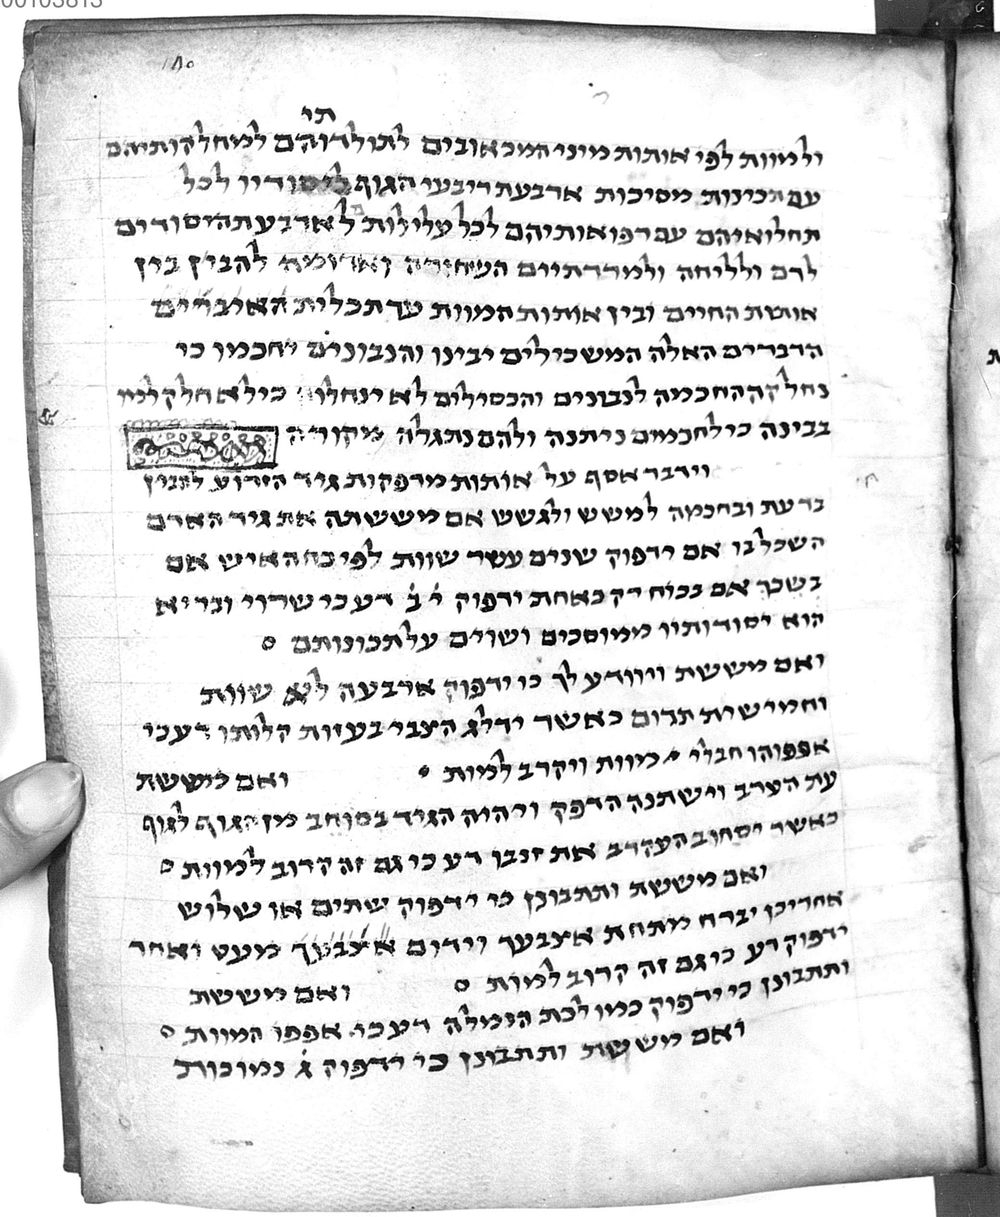 00103813
תי
ולמוות לפי אותות מיני המכאובים לתולדותם למחלקותיהם
עם תכינות מסיכות ארבעת ריבעי הגוף ליסודיו לכל
תחלואיהם עם רפואותיהם לכל עלילות לארבעת היסודים
לדם ולליחה ולמדרתיים השחורה ואדומה להבין בין
אותות החיים ובין אותות המוות עד תכלית האיברים
הדברים האלה המשכילים יבינו והנבונים יחכמו כי
נחלקה החכמה לנבונים והכסילים לא ינחלו כי לא חלק למו
בבינה כי לחכמים ניתנה ולהם נתגלה מקורה
וידבר אסף על אותות מרפקות גיד הידוע להבין
בדעת ובחכמה למשש ולגשש אם מששתה את גיד האדם
השכל בו אם ידפוק שנים עשר שוות לפי כח האיש אם
בשכך אם בכוח רק כאחת ידפוק יב דע כי שרוי ובריא
הוא יסודותיו ממוסכים ושוים על תכונותם
ואם מששת ויוודע לך כי ידפוק ארבעה לא שוות
וחמישית תדום כאשר ידלג הצבי בעזות קלותו דע כי
אפפוהו חבלי מיוות ויקרב למות
ואם מששת
עת הערב וישתנה הדפק ויהיה הגיד בסוחב מן הגוף לגוף
כאשר יסחוב העקרב את זנבו דע כי גם זה קרוב למוות
ואם מששת ותתבונן כי ידפוק שתים או שלוש
אחרי כן יברח מתחת אצבעך וידום אצבעך מעט ואחר
ידפוק דע כי גם זה קרוב למות
ואם מששת
ותתבונן כי ידפוק כמו לכת הנמלה דע כי אפפו המוות
ואם מששת ותתבונן כי ידפוק ג נמוכות